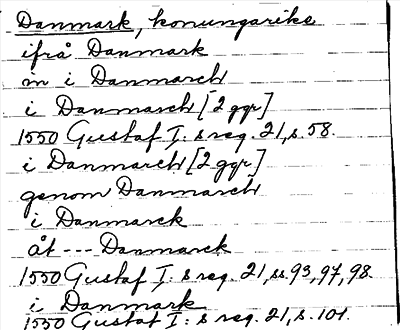 Danmark, konungarike
ifrå Danmark
in i Danmarch
i Danmarch [2 ggr]
1550 Gustaf I: s reg. 21, s. 58.
i Danmarch [2 ggr]
genom Danmarch
i Danmarck
åt --- Danmarck
1550 Gustaf I: s reg. 21, ss. 93, 97, 98.
i Danmark
1550 Gustaf I: s reg. 21, s. 101.